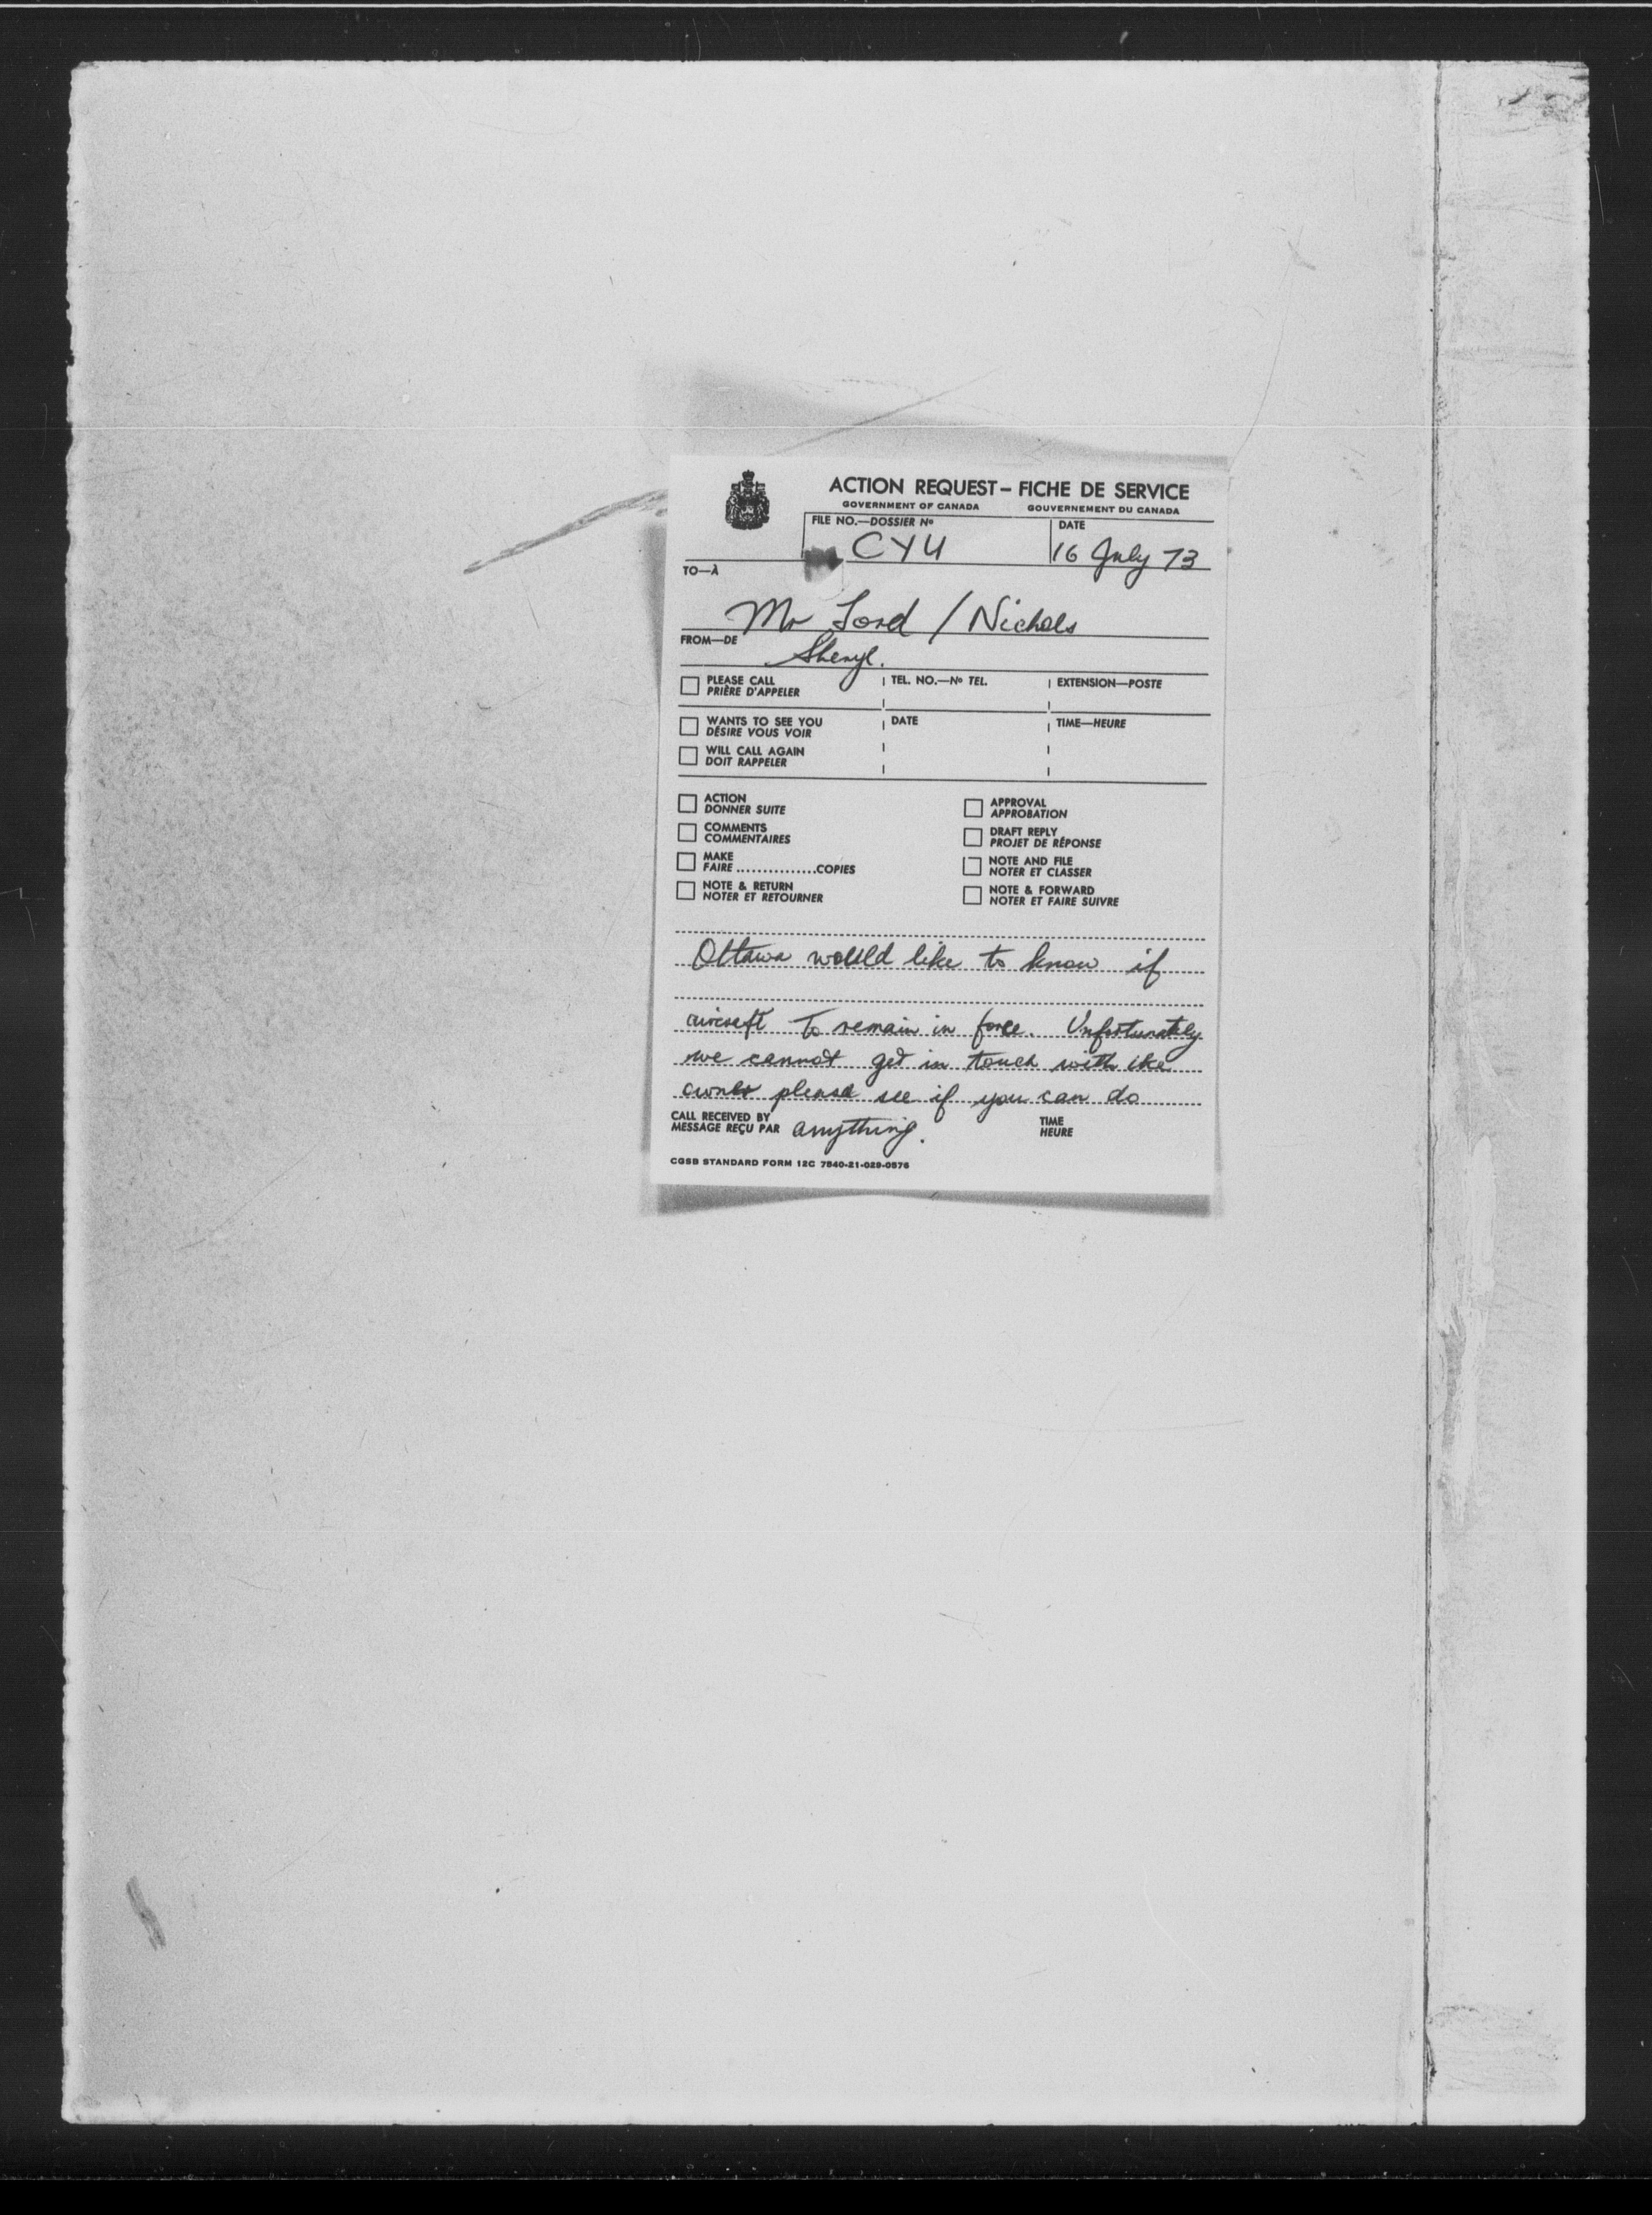 ACTION REQUEST – FICHE DE SERVICE
GOVERNMENT OF CANADA GOUVERNEMENT DU CANADA
FILE NO.—DOSSIER Nº DATE
CYU 16 July 73
TO—À
Mr Lord / Nichols
FROM—DE
Sheryl.
PLEASE CALL TEL. NO.—Nº TEL. EXTENSION—POSTE
PRIÈRE D'APPELER
WANTS TO SEE YOU DATE TIME—HEURE
DÉSIRE VOUS VOIR
WILL CALL AGAIN
DOIT RAPPELER
ACTION APPROVAL
DONNER SUITE APPROBATION
COMMENTS DRAFT REPLY
COMMENTAIRES PROJET DE RÉPONSE
MAKE NOTE AND FILE
FAIRE ...............COPIES NOTER ET CLASSER
NOTE & RETURN NOTE & FORWARD
NOTER ET RETOURNER NOTER ET FAIRE SUIVRE
Ottawa would like to know if
aircraft to remain in force. Unfortunately
we cannot get in touch with the
owner please see if you can do
CALL RECEIVED BY TIME
MESSAGE REÇU PAR anything. HEURE
CGSB STANDARD FORM 12C 7540-21-029-0576